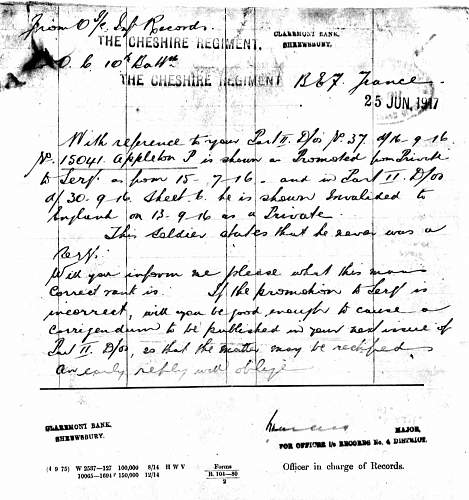 From O i/c Inf Records.
CLAREMONT BANK,
SHREWSBURY.
THE CHESHIRE REGIMENT.
O. C. 10th Battn
THE CHESHIRE REGIMENT
B.E.F. France
25 JUN, 1917
With reference to your Part II. D/os No. 37. d/16-9-16
No. 15041 Appleton P is shown as Promoted from Private
to Serjt as from 15-7-16 - and in Part II D/os
d/30.9.16. Sheet 6. he is shown Invalided to
England on 13-9-16 as a Private
This Soldier states that he never was a
Serjt.
Will you inform me please what this mans
correct rank is. If the promotion to Serjt is
incorrect, will you be good enough to cause a
corrigendum to be published in your next issue of
Part II. D/os, so that the matter may be rectified
An early reply will oblige
CLAREMONT BANK,
SHREWSBURY.
MAJOR,
FOR OFFICER i/c RECORDS No. 4 DISTRICT.
(1 9 75) W 2537—127 100,000 8/14 H W V
10065—1694 150,000 12/14
Forms
B. 101—80
2
Officer in charge of Records.